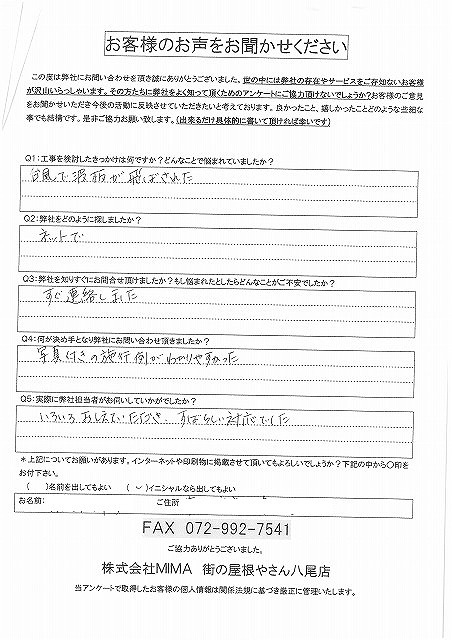 お客様のお声をお聞かせください
この度は弊社にお問い合わせを頂き誠にありがとうございました。世の中には弊社の存在やサービスをご存知ないお客様
が沢山いらっしゃいます。その方たちに弊社をよく知って頂くためのアンケートにご協力頂けないでしょうか?お客様のご意見
をお聞かせいただき今後の活動に反映させていただきたいと考えております。良かったこと、嬉しかったことどのような些細な
事でも結構です。是非ご協力お願い致します。(出来るだけ具体的に書いて頂ければ幸いです)
Q1:工事を検討したきっかけは何ですか?どんなことで悩まれていましたか?
台風で波板が飛ばされた
Q2:弊社をどのように探しましたか?
ネットで
Q3:弊社を知りすぐにお問合せ頂けましたか?もし悩まれたとしたらどんなことがご不安でしたか?
すぐ連絡しました
Q4:何が決め手となり弊社にお問い合わせ頂きましたか?
写真付きの施行例がわかりやすかった
Q5:実際に弊社担当者がお伺いしていかがでしたか?
いろいろおしえていただき、すばらしい対応でした
*上記についてお願いがあります。インターネットや印刷物に掲載させて頂いてもよろしいでしょうか?下記の中から○印を
お付下さい。
( )名前を出してもよい ( )イニシャルなら出してもよい
お名前: ご住所
FAX 072-992-7541
ご協力ありがとうございました。
株式会社MIMA 街の屋根やさん八尾店
当アンケートで取得したお客様の個人情報は関係法規に基づき厳正に管理いたします。